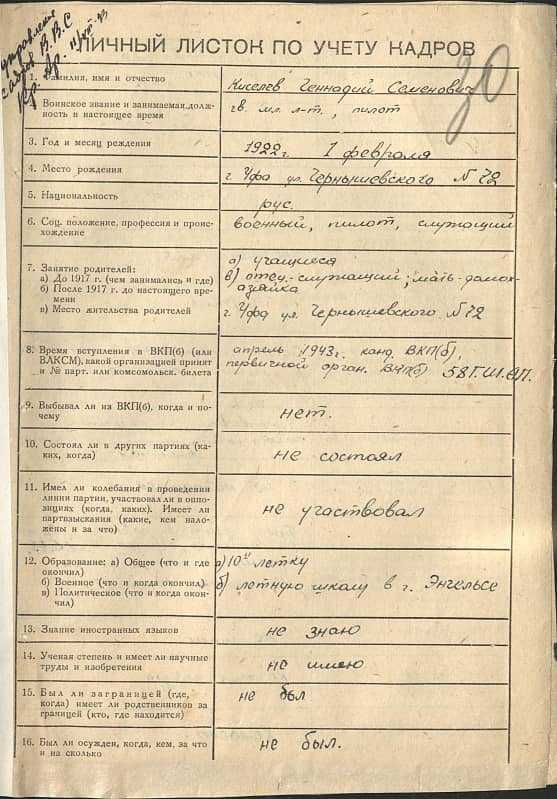 управление
кадров В.В.С
ЛИЧНЫЙ ЛИСТОК ПО УЧЕТУ КАДРОВ
30
1. Фамилия, имя и отчество
Киселев Геннадий Семенович
Воинское звание и занимаемая долж-
ность в настоящее время
гв. мл. л-т., пилот
3. Год и месяц рождения
1922г. 1 февраля
4. Место рождения
г. Уфа ул. Чернышевского N 72
5. Национальность
рус.
6. Соц. положение, профессия и проис-
хождение
военный, пилот, служащий
7. Занятие родителей:
а) До 1917 г. (чем занимались и где)
б) После 1917 г. до настоящего вре-
мени
в) Место жительства родителей
а) учащиеся
в) отец-служащий; мать-домох-
азяйка
г. Уфа ул. Чернышевского N 72
8. Время вступления в ВКП(б) (или
ВЛКСМ), какой организацией принят
и № парт. или комсомольск. билета
апрель 1943г. канд. ВКП(б),
первичной орган. ВКП(б) 58Г.Ш.АП.
9. Выбывал ли из ВКП(б), когда и по-
чему
нет.
10. Состоял ли в других партиях (ка-
ких, когда)
не состоял
11. Имел ли колебания в проведении
линии партии, участвовал ли в оппо-
зициях (когда, каких). Имеет ли
партвзыскания (какие, кем нало-
жены и за что)
не участвовал
12. Образование: а) Общее (что и где
окончил)
б) Военное (что и когда окончил)
в) Политическое (что и когда окон-
чил)
а) 10и летку
б) летную школу в г. Энгельсе
13. Знание иностранных языков
не знаю
14. Ученая степень и имеет ли научные
труды и изобретения
не имею
15. Был ли заграницей (где,
когда) имеет ли родственников за
границей (кто, где находится)
не был
16. Был ли осужден, когда, кем, за что
и на сколько
не был.